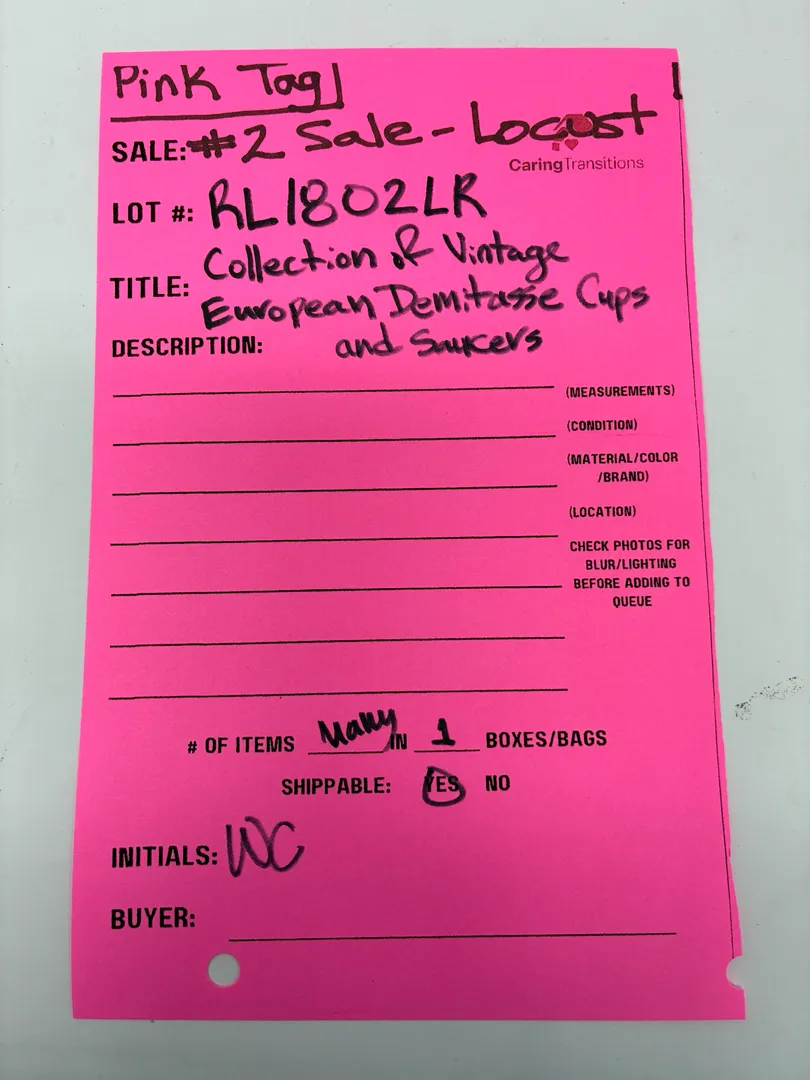 Pink Tag
SALE: #2 Sale - Locust
CaringTransitions
LOT #: RL1802LR
TITLE: Collection of Vintage
European Demitasse Cups
DESCRIPTION: and Saucers
(MEASUREMENTS)
(CONDITION)
(MATERIAL/COLOR
/BRAND)
(LOCATION)
CHECK PHOTOS FOR
BLUR/LIGHTING
BEFORE ADDING TO
QUEUE
# OF ITEMS Many IN 1 BOXES/BAGS
SHIPPABLE: YES NO
INITIALS: WC
BUYER: